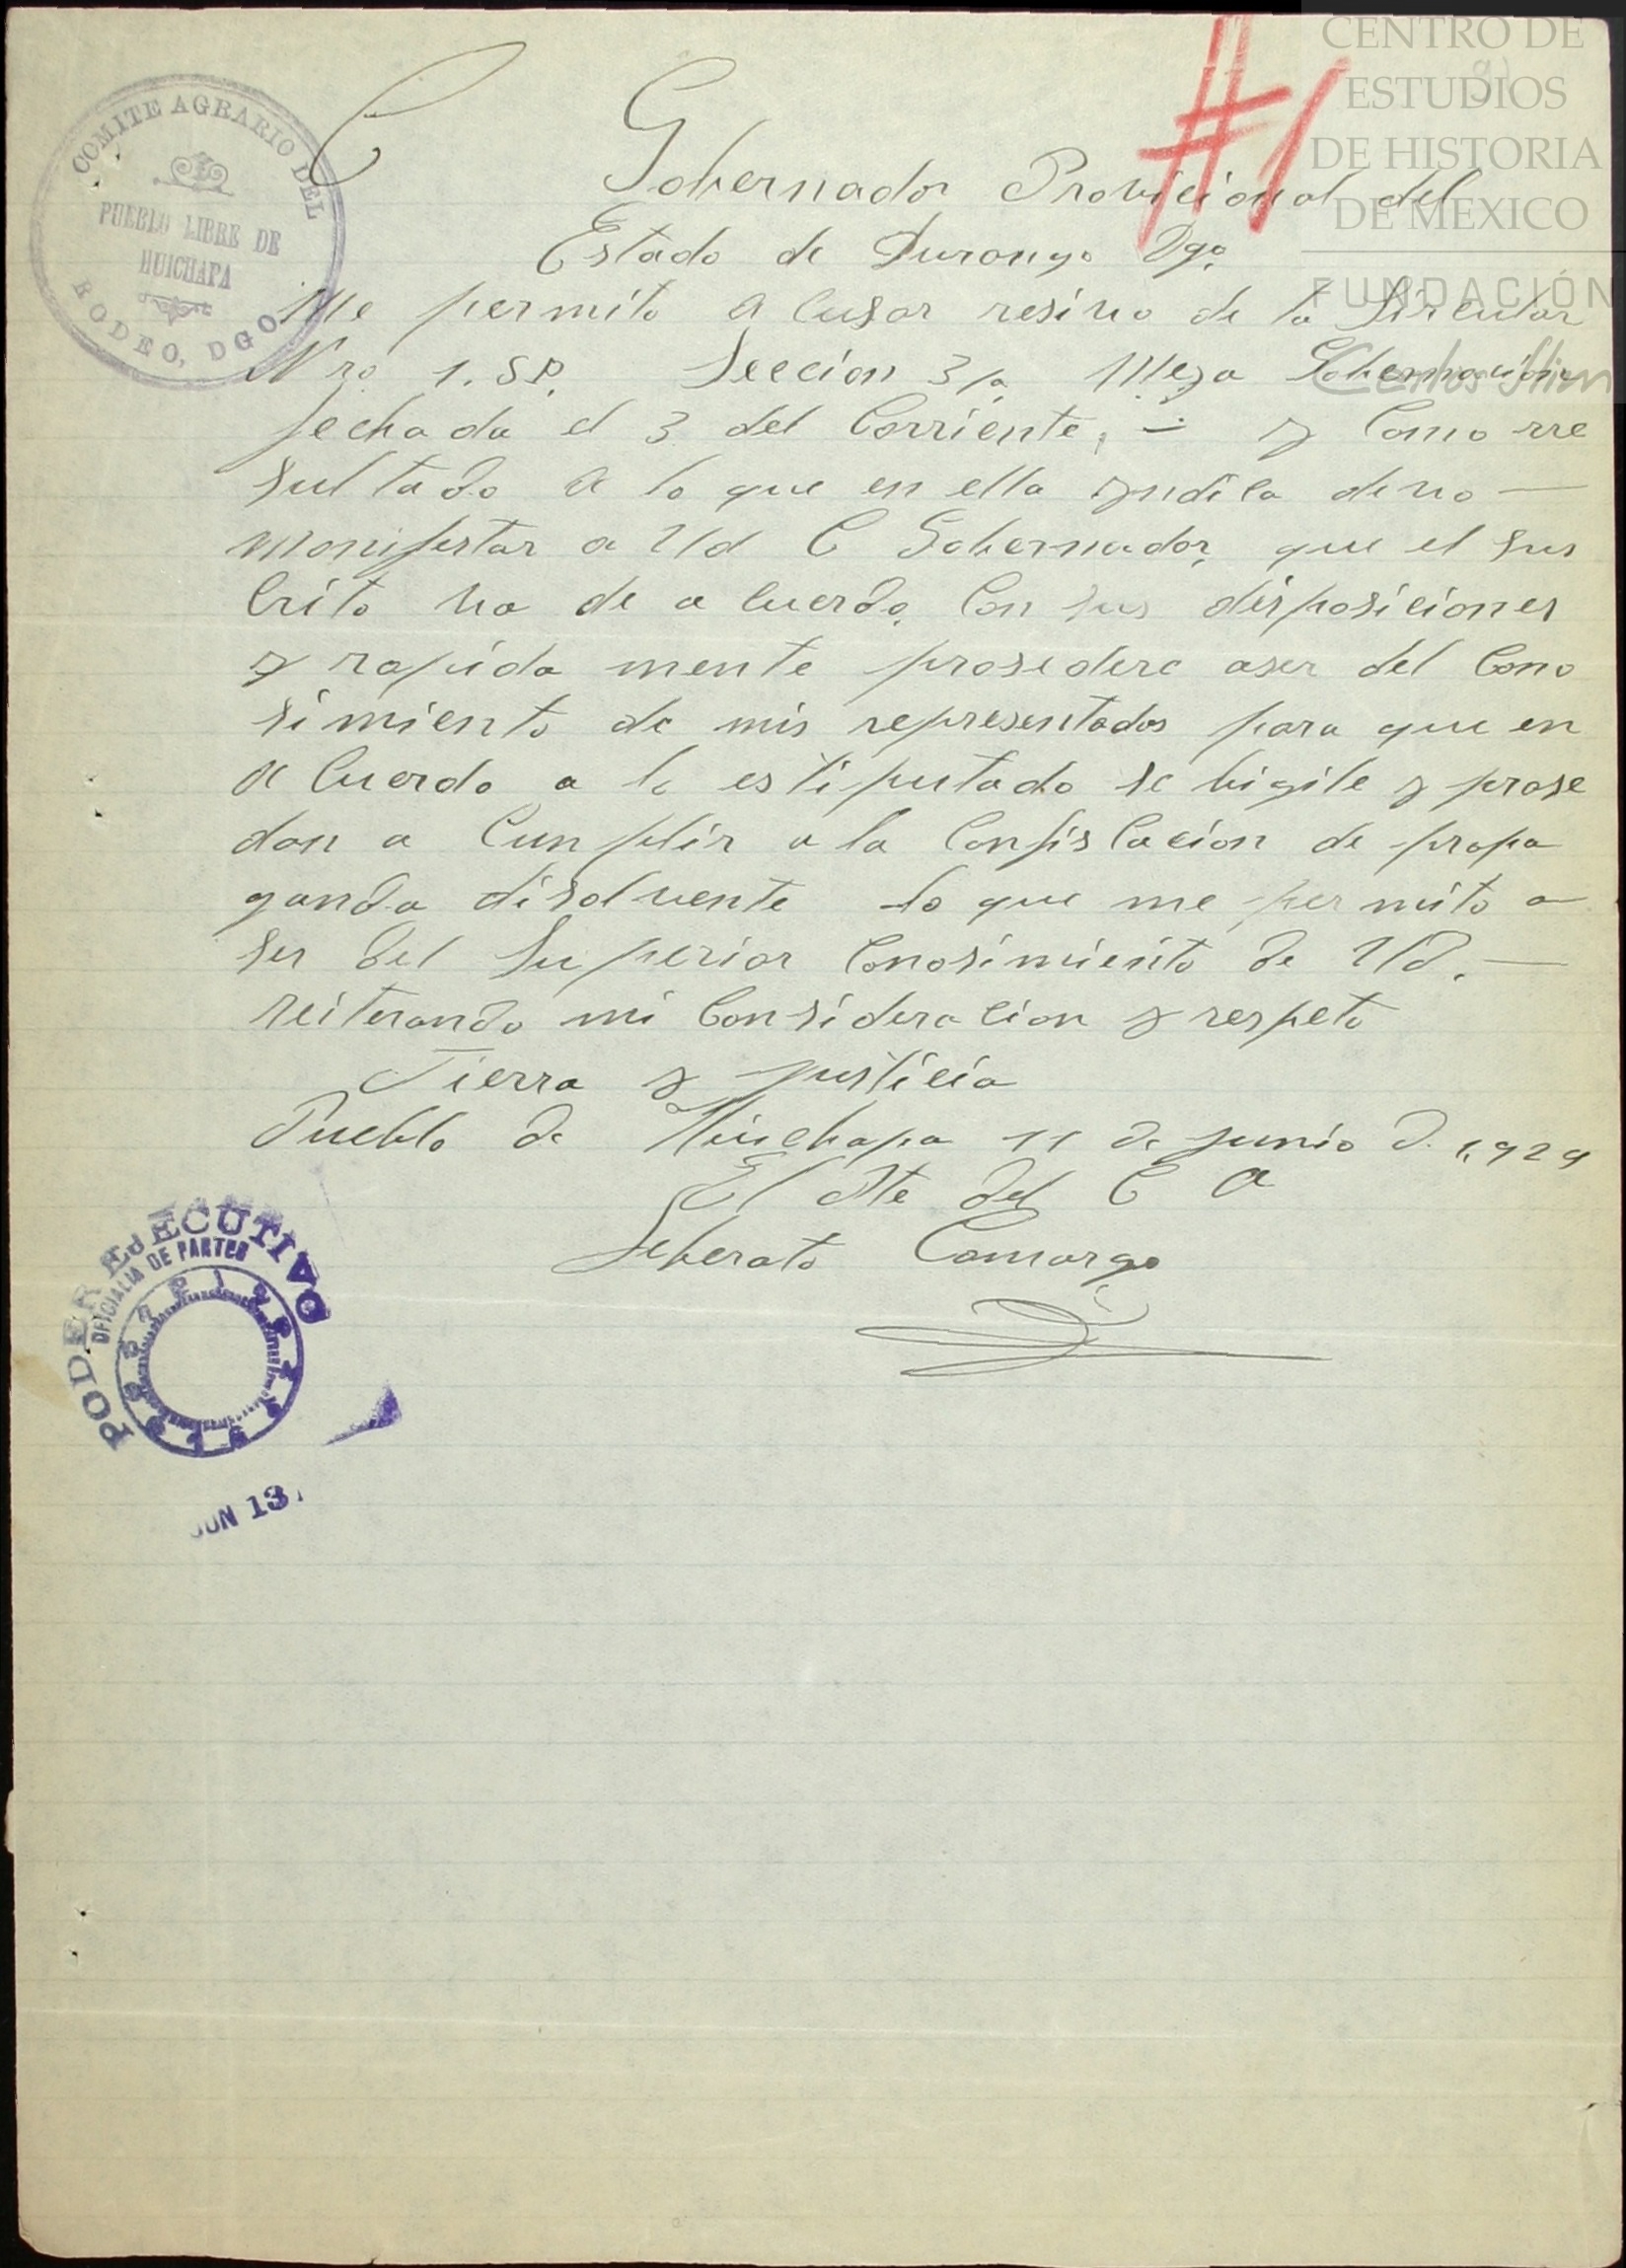 CENTRO DE
ESTUDIOS
DE HISTORIA
DE MÉXICO
FUNDACIÓN
Carlos Slim
COMITE AGRARIO DEL
PUEBLO LIBRE DE
HUICHAPA
RODEO, DGO
#1
C Gobernador Provicional del
Estado de Durango Dgo.
Me permito a cusar resivo de la Sircular
Nro 1. S.P. Seccion 3/a Meza Gobernacion
fechada el 3 del Corriente, – y Como rre
sultado a lo que en ella yndica devo —
manifestar a Ud C Gobernador, que el sus
crito va de a cuerdo, Con sus disposiciones
y rapida mente prosedere aser del Cono
simiento de mis representados para que en
a Cuerdo a lo estipulado se bigile y prose
dan a Cumplir a la Confiscacion de propa
ganda disolvente lo que me permito a
ser del Superior Conosimiento de Ud. —
reiterando mi Consideracion y respeto
Tierra y justicia
Pueblo de Huichapa 11 de junio d. 1,929
El Pte del C A
Leberato Camargo
PODER EJECUTIVO
OFICIALIA DE PARTES
JUN 13